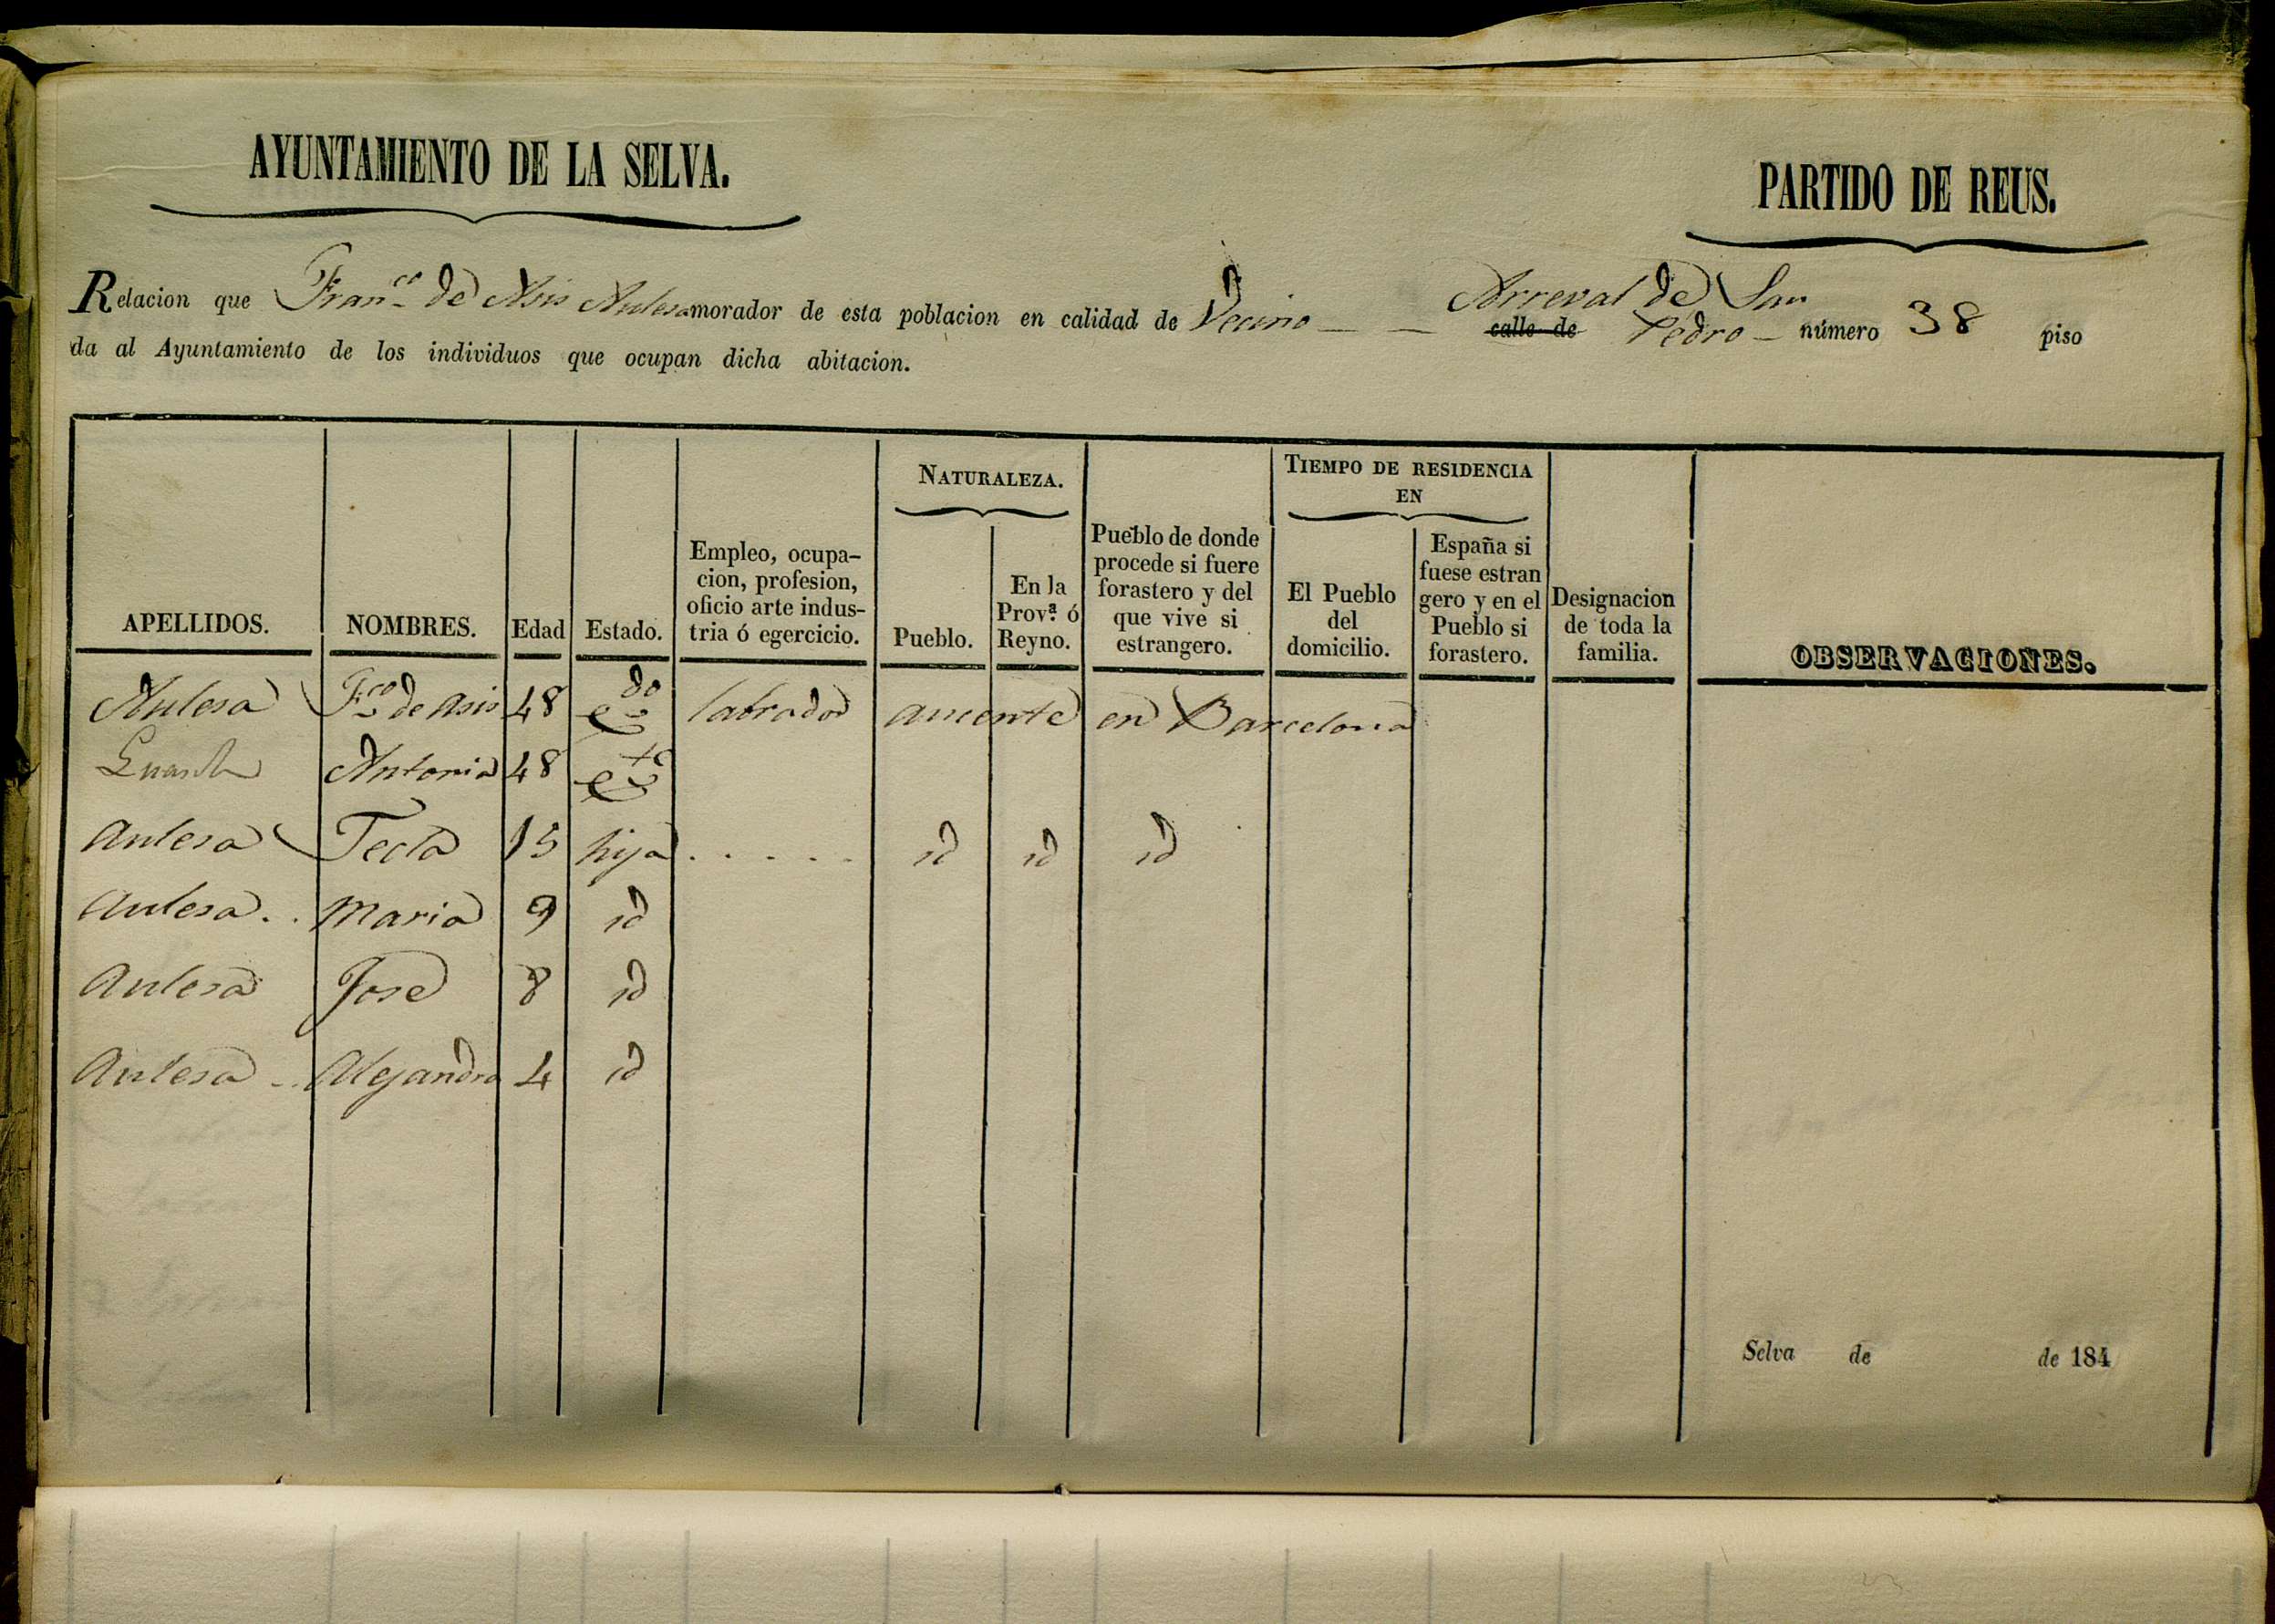 AYUNTAMIENTO DE LA SELVA.
PARTIDO DE REUS.
Relacion que Fran.co de Asis Aulesa morador de esta poblacion en calidad de Vecino Arreval de San
calle de Pedro número 38 piso
da al Ayuntamiento de los individuos que ocupan dicha abitacion.
APELLIDOS.
NOMBRES.
Edad
Estado.
Empleo, ocupa-
cion, profesion,
oficio arte indus-
tria ó egercicio.
NATURALEZA.
Pueblo.
En la
Prov.ª ó
Reyno.
Pueblo de donde
procede si fuere
forastero y del
que vive si
estrangero.
TIEMPO DE RESIDENCIA
EN
El Pueblo
del
domicilio.
España si
fuese estran
gero y en el
Pueblo si
forastero.
Designacion
de toda la
familia.
OBSERVACIONES.
Aulesa F.co de Asis 48 c.do labrador aucente en Barcelona
Antonia 48 c.
Aulesa Tecla 15 hija . . . . . id id id
Aulesa . . Maria 9 id
Aulesa Jose 8 id
Aulesa - . Alejandro 4 id
Selva de de 184